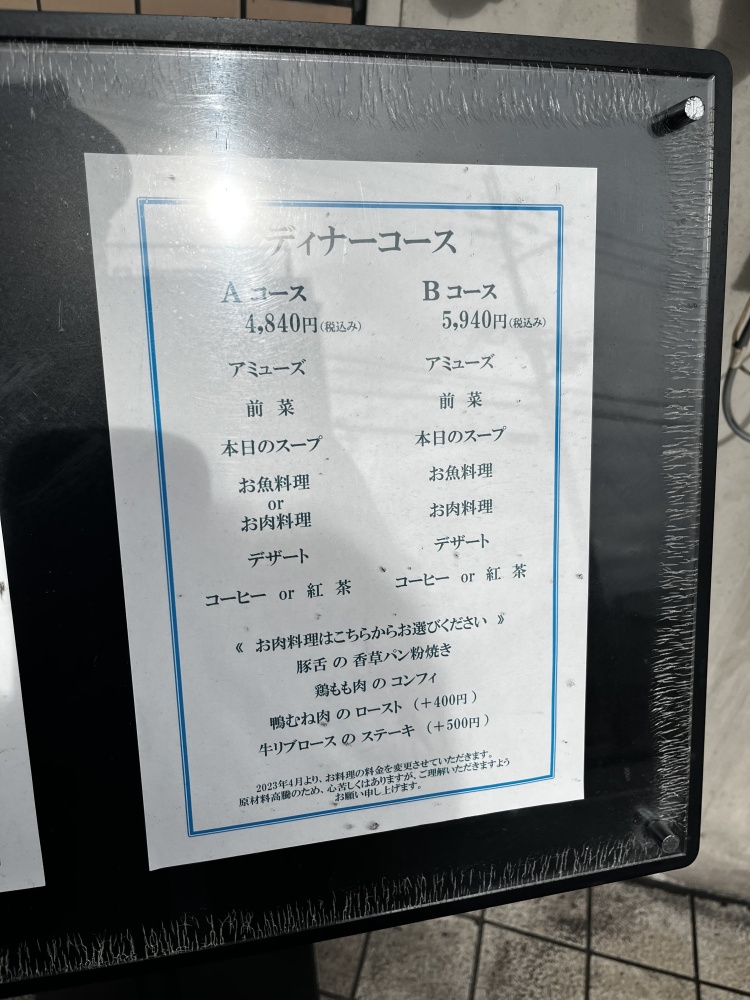 ディナーコース
A コース
4,840円(税込み)
アミューズ
前 菜
本日のスープ
お魚料理
or
お肉料理
デザート
コーヒー or 紅 茶
B コース
5,940円(税込み)
アミューズ
前 菜
本日のスープ
お魚料理
お肉料理
デザート
コーヒー or 紅 茶
《 お肉料理はこちらからお選びください 》
豚舌 の 香草パン粉焼き
鶏もも肉 の コンフィ
鴨むね肉 の ロースト (+400円)
牛リブロース の ステーキ (+500円)
2023年4月より、お料理の料金を変更させていただきます。
原材料高騰のため、心苦しくはありますが、ご理解いただきますよう
お願い申し上げます。